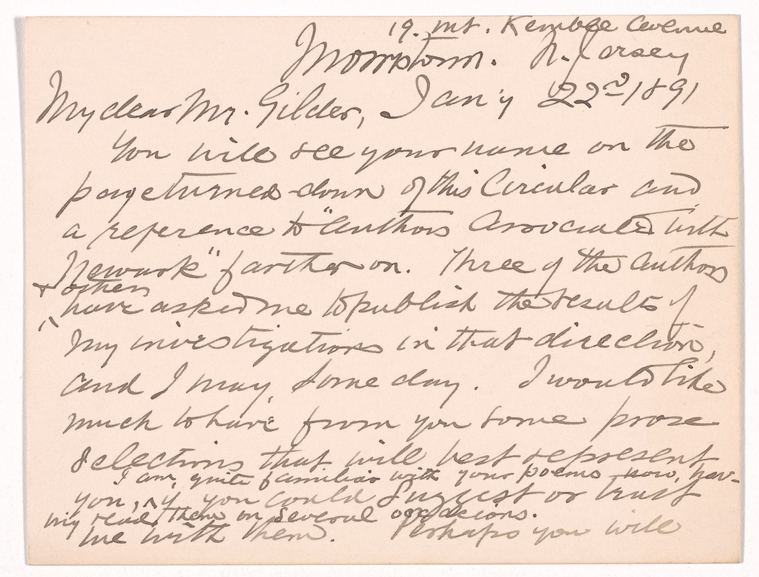 19. Mt. Kemble Avenue
Morristown. N. Jersey
My dear Mr. Gilder, Jan'y 22nd 1891
You will see your name on the
page turned-down of this Circular and
a reference to "Authors Associated with
Newark" farther on. Three of the authors
+ others
have asked me to publish the results of
my investigations in that direction,
and I may, some day. I would like
much to have from you some prose
selections that will best represent
I am, quite familiar with your poems now, hav-
you, if you could suggest or trust
ing read them on several occasions.
me with them. Perhaps you will